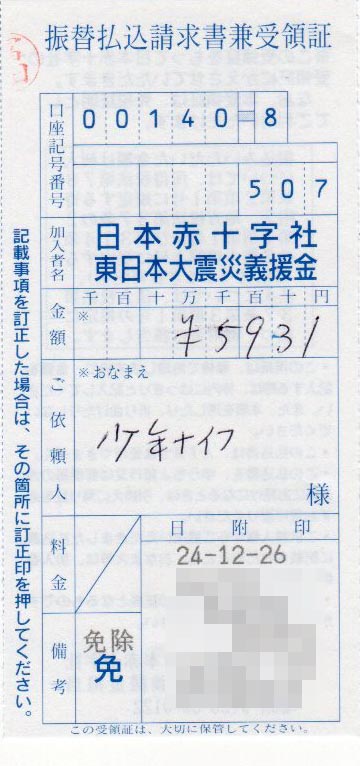 振替払込請求書兼受領証
口座記号番号
00140-8
507
加入者名
日本赤十字社
東日本大震災義援金
金額
千百十万千百十円
※
¥5931
ご依頼人
※おなまえ
少年ナイフ
様
料金
日附印
24-12-26
備考
免除
免
記載事項を訂正した場合は、その箇所に訂正印を押してください。
この受領証は、大切に保管してください。